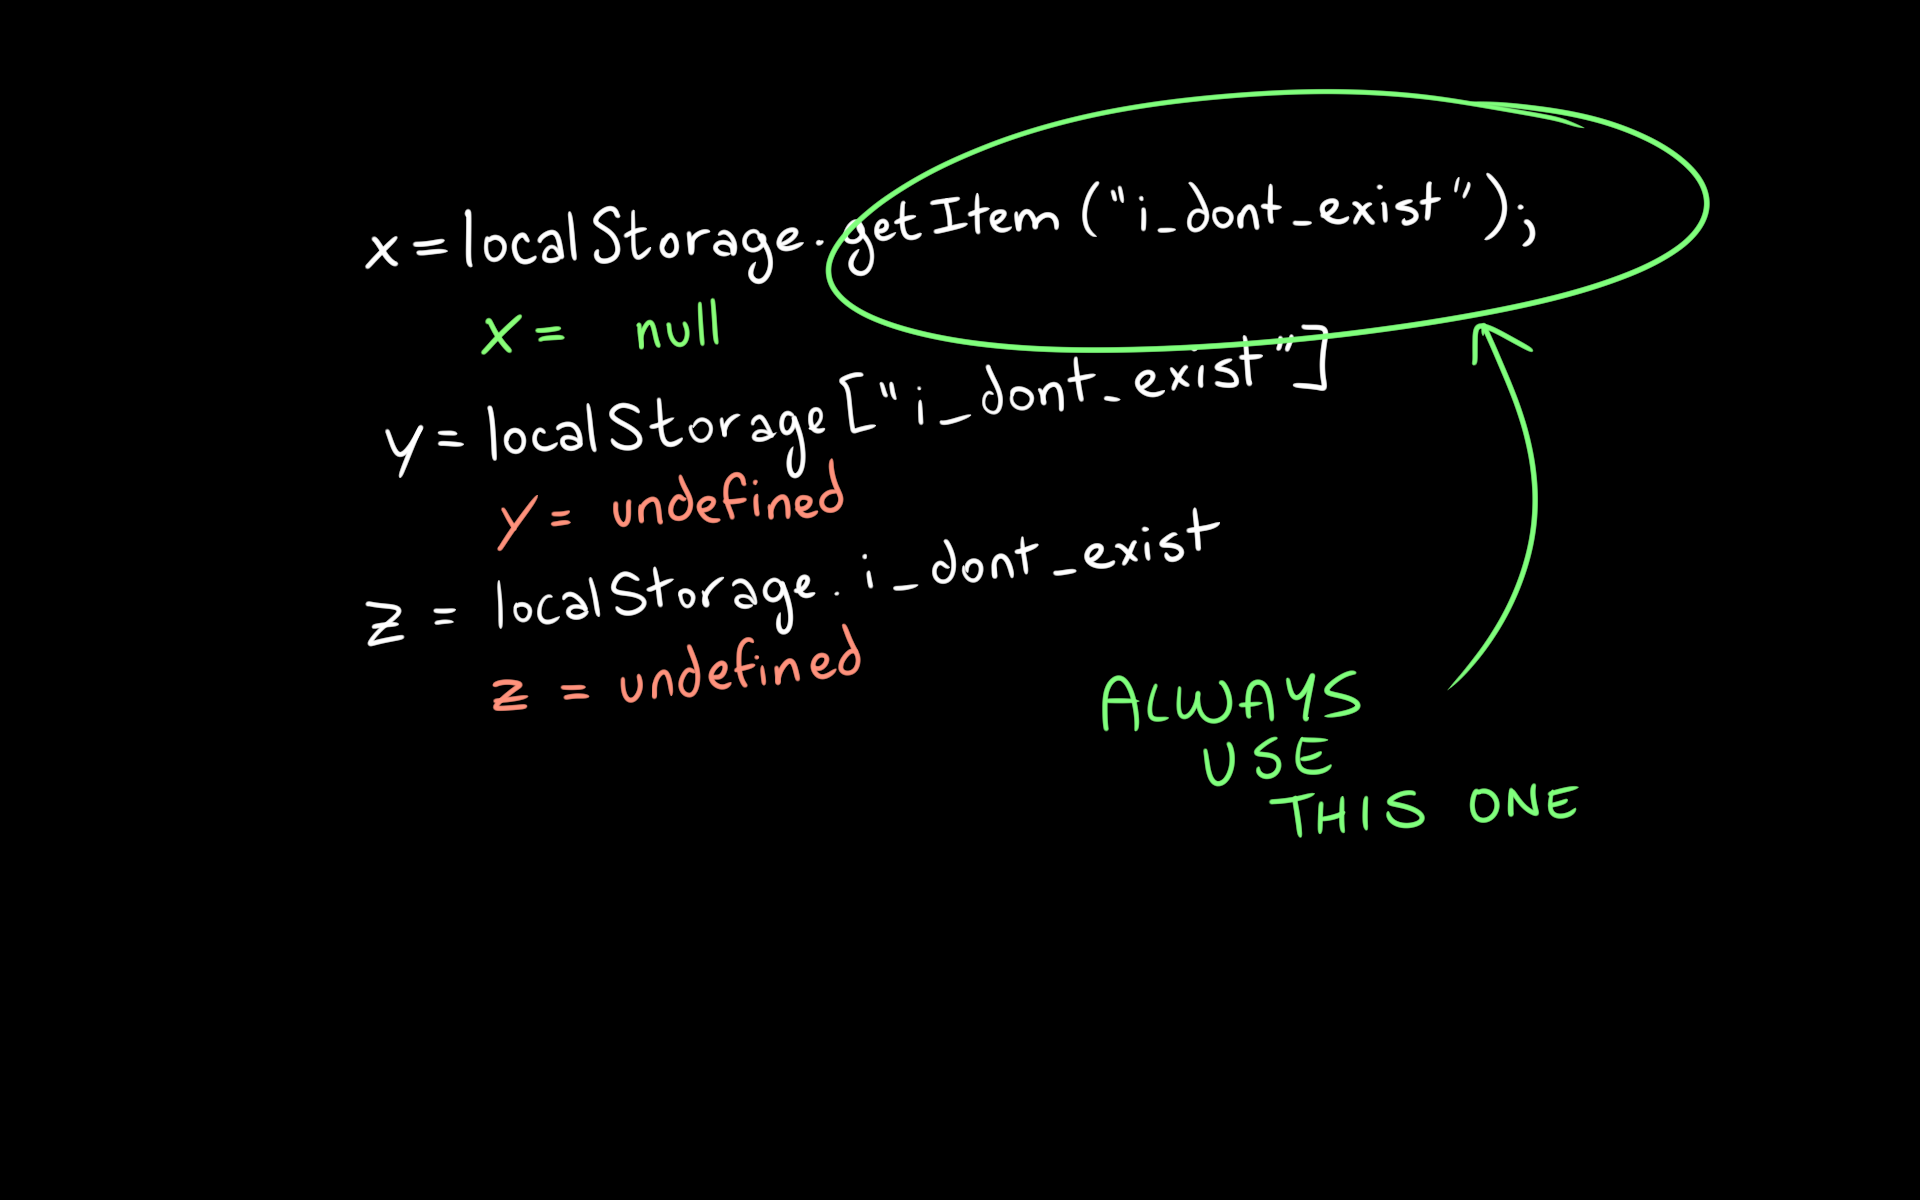 x = localStorage.getItem("i_dont_exist");
x = null
y = localStorage["i_dont_exist"]
y = undefined
z = localStorage.i_dont_exist
z = undefined
ALWAYS
USE
THIS ONE